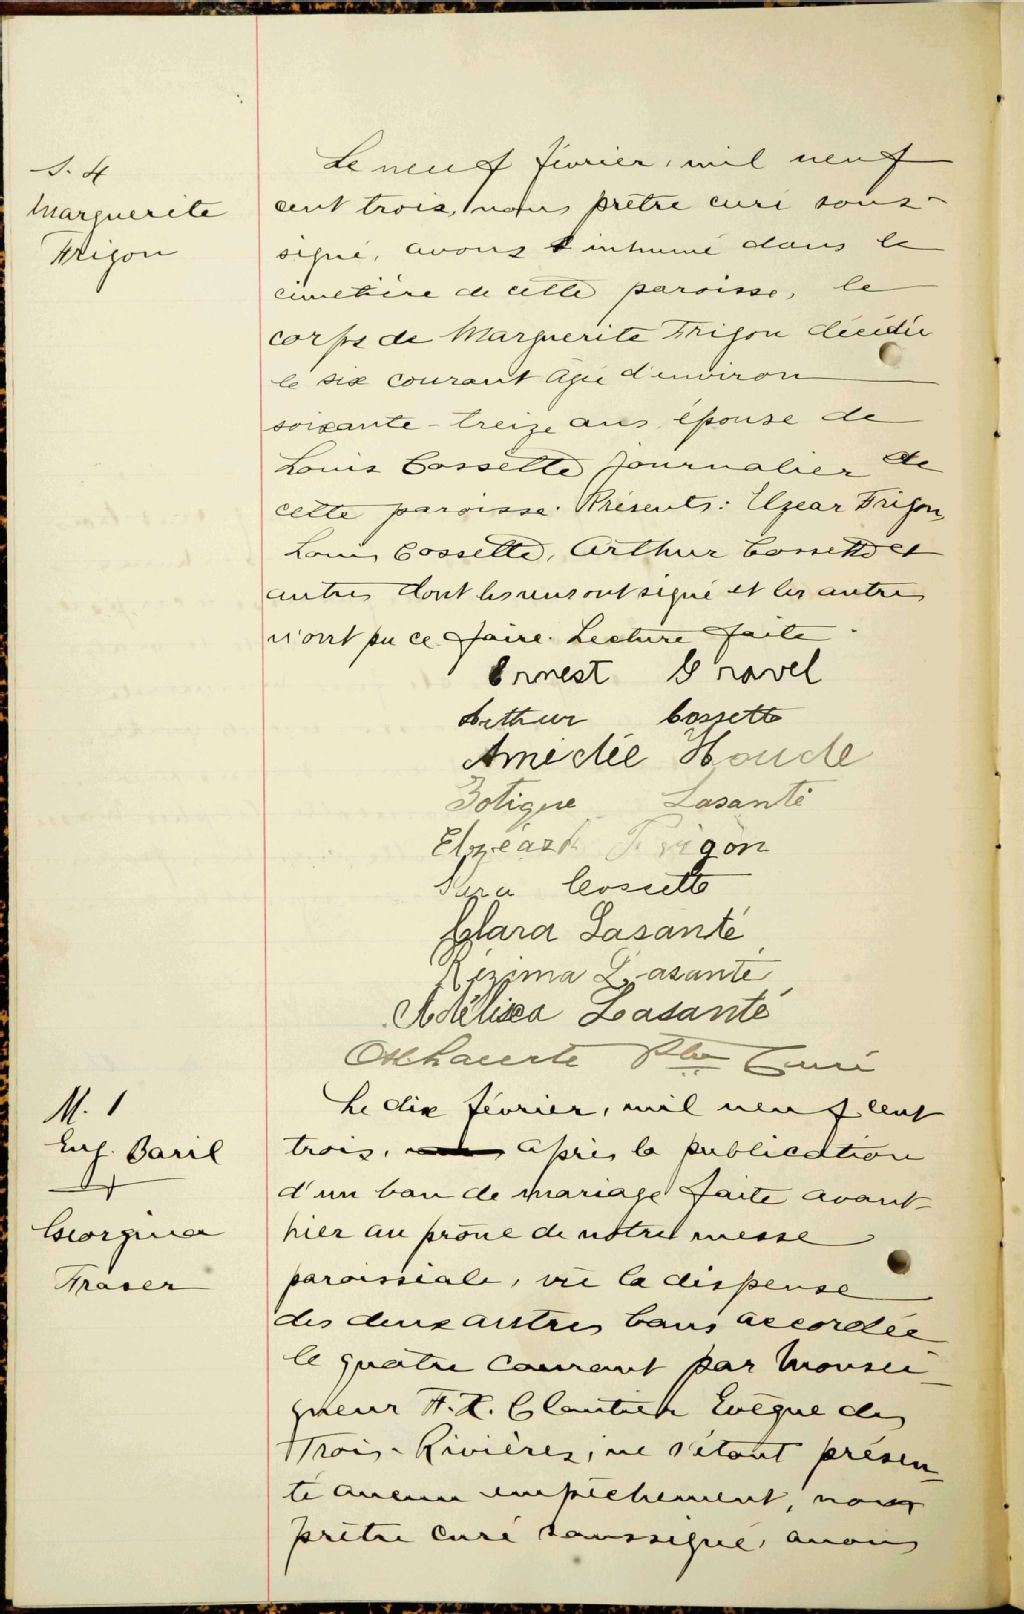 S. 4
Marguerite
Frigon
Le neuf février, mil neuf
cent trois, nous prêtre curé sous-
signé, avons inhumé dans le
cimetière de cette paroisse, le
corps de Marguerite Frigon décédée
le six courant âgée d'environ
soixante-treize ans, épouse de
Louis Cossette journalier de
cette paroisse. Présents: Elzear Frigon,
Louis Cossette, Arthur Cossette et
autres dont les uns ont signé et les autres
n'ont pu ce faire. Lecture faite.
Ernest Gravel
Arthur Cossette
Amédée Houde
Zotique Lasanté
Elzéar Frigon
Sara Cossette
Clara Lasanté
Rézima Lasanté
Lasanté
Ptre Curé
M. 1
Eug. Baril
&
Georgina
Fraser
Le dix février, mil neuf cent
trois, après la publication
d'un ban de mariage faite avant-
hier au prône de notre messe
paroissiale, vu la dispense
des deux autres bans accordée
le quatre courant par Monsei-
gneur F. X. Cloutier Evêque des
Trois-Rivières, ne s'étant présen-
té aucun empêchement, nous
prêtre curé soussigné, avons